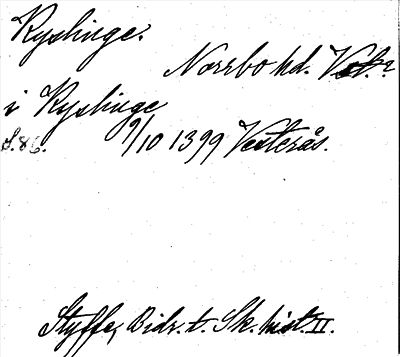 Kyslinge.
Norrbo hd. Vsl.?
i Kyslinge
S. 86. 9/10 1399 Vesterås.
Styffe, Bidr. t. Sk. hist. II.